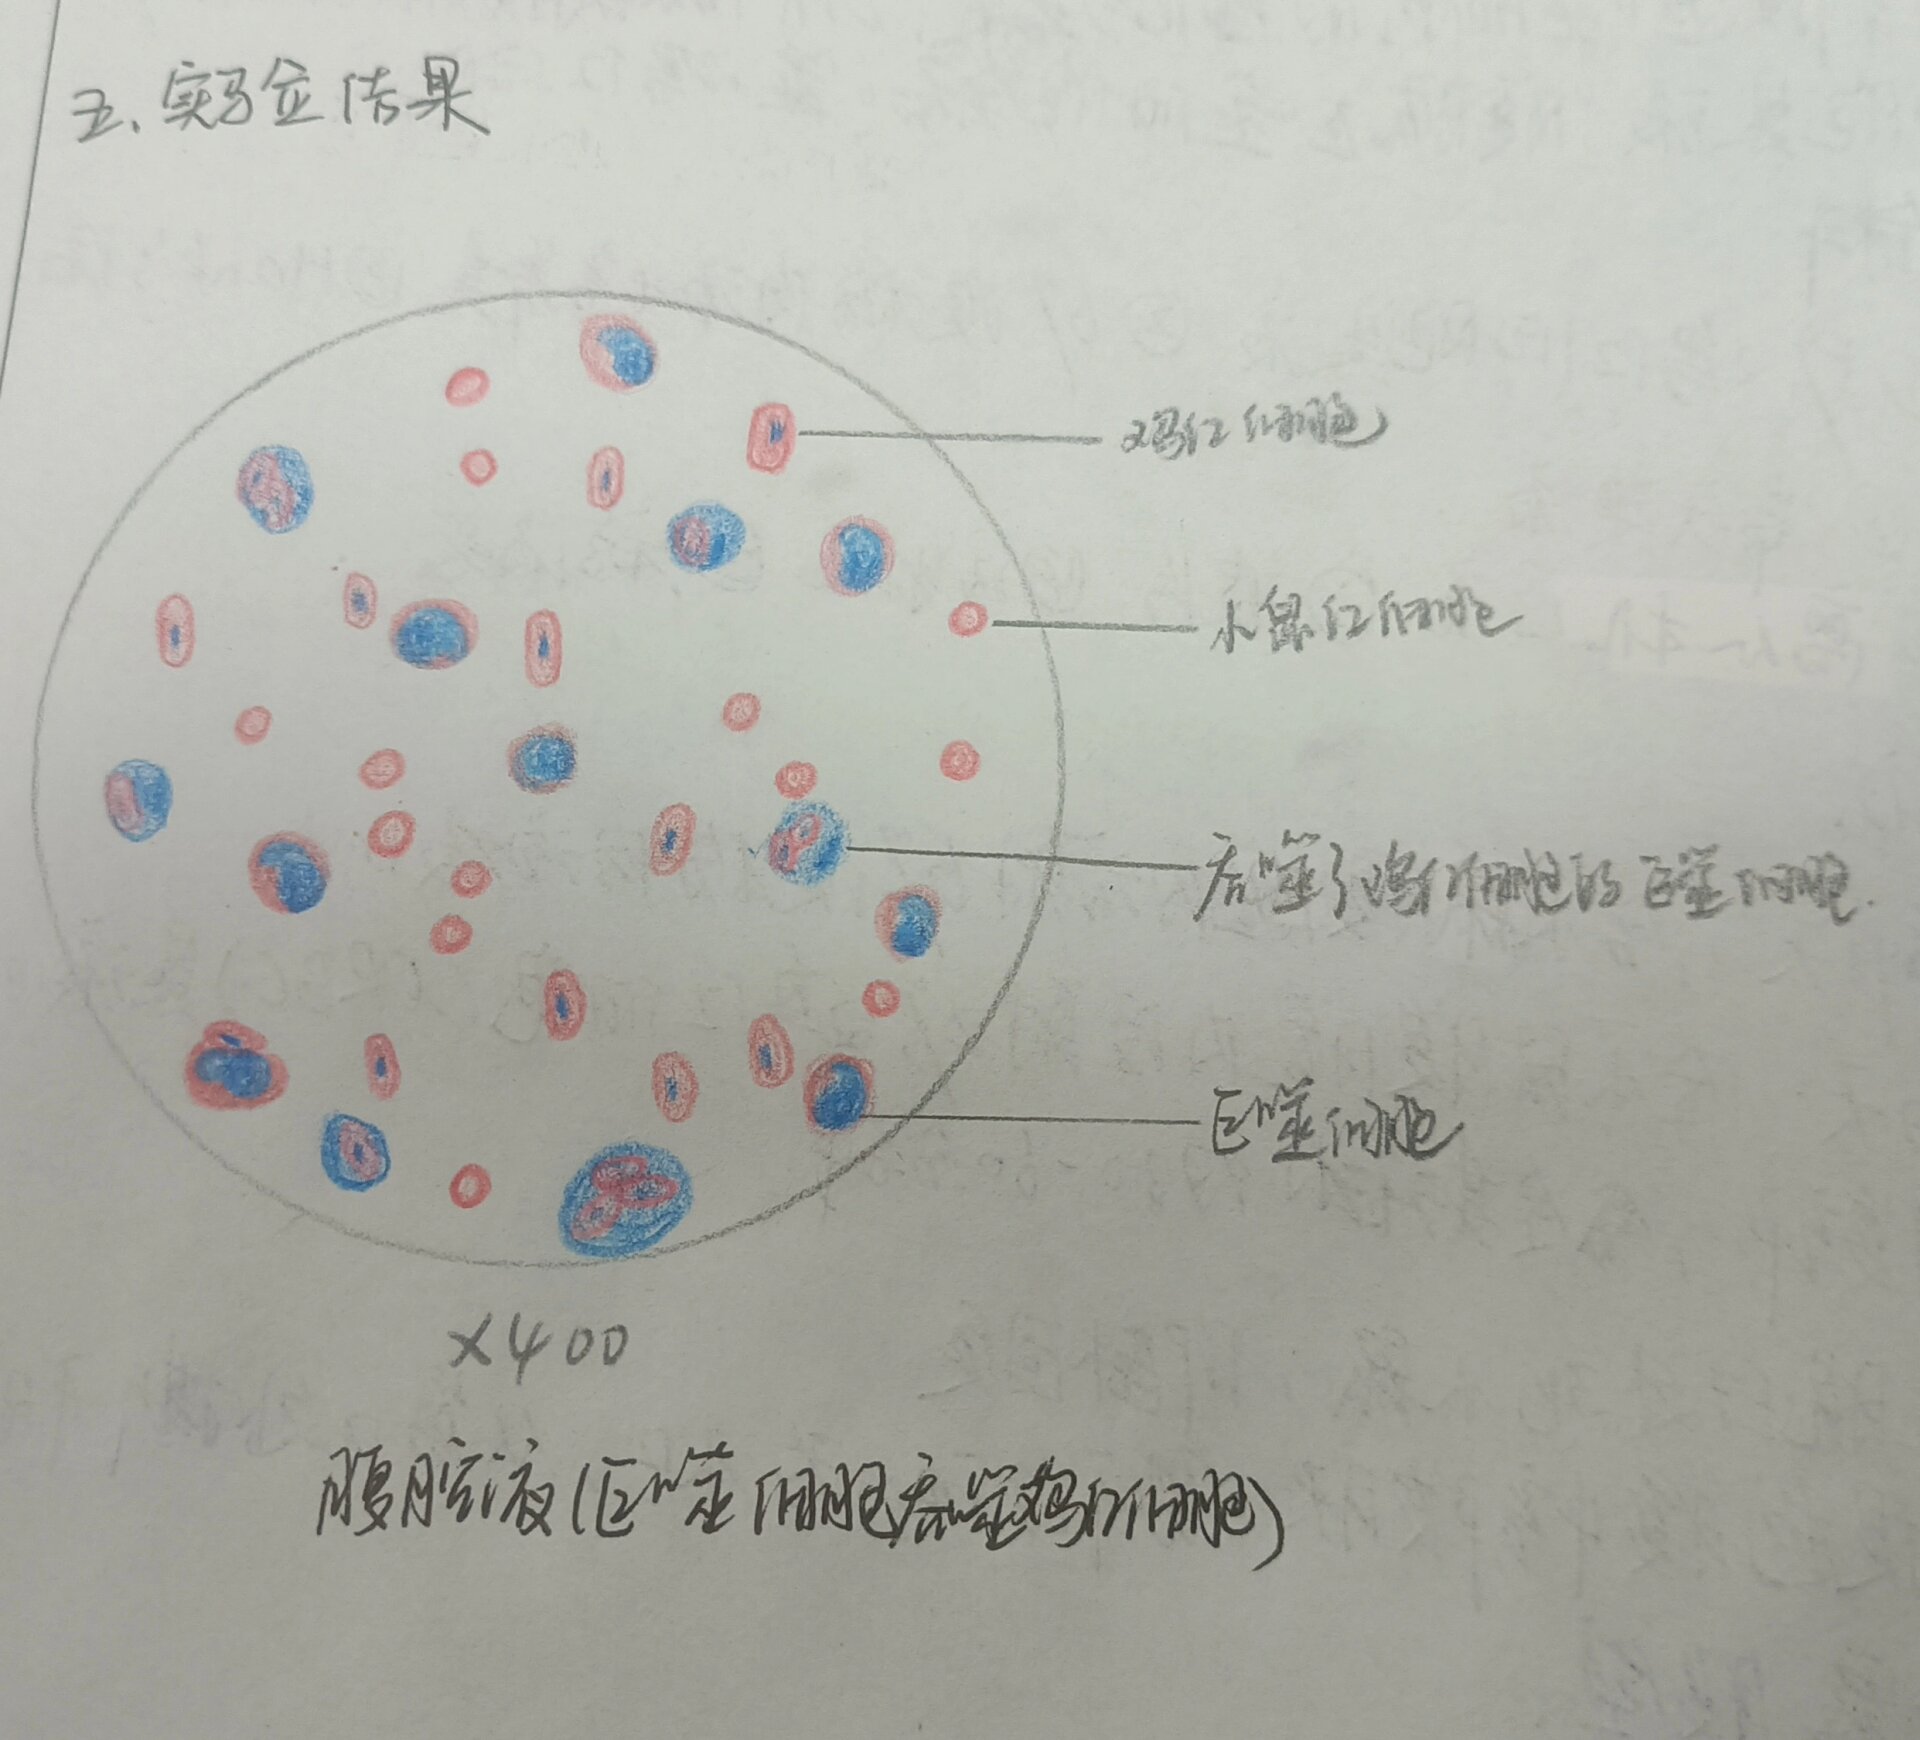 五、实验结果
鸡红细胞
小鼠红细胞
吞噬了鸡红细胞的巨噬细胞.
巨噬细胞
×400
腹腔液(巨噬细胞吞噬鸡红细胞)